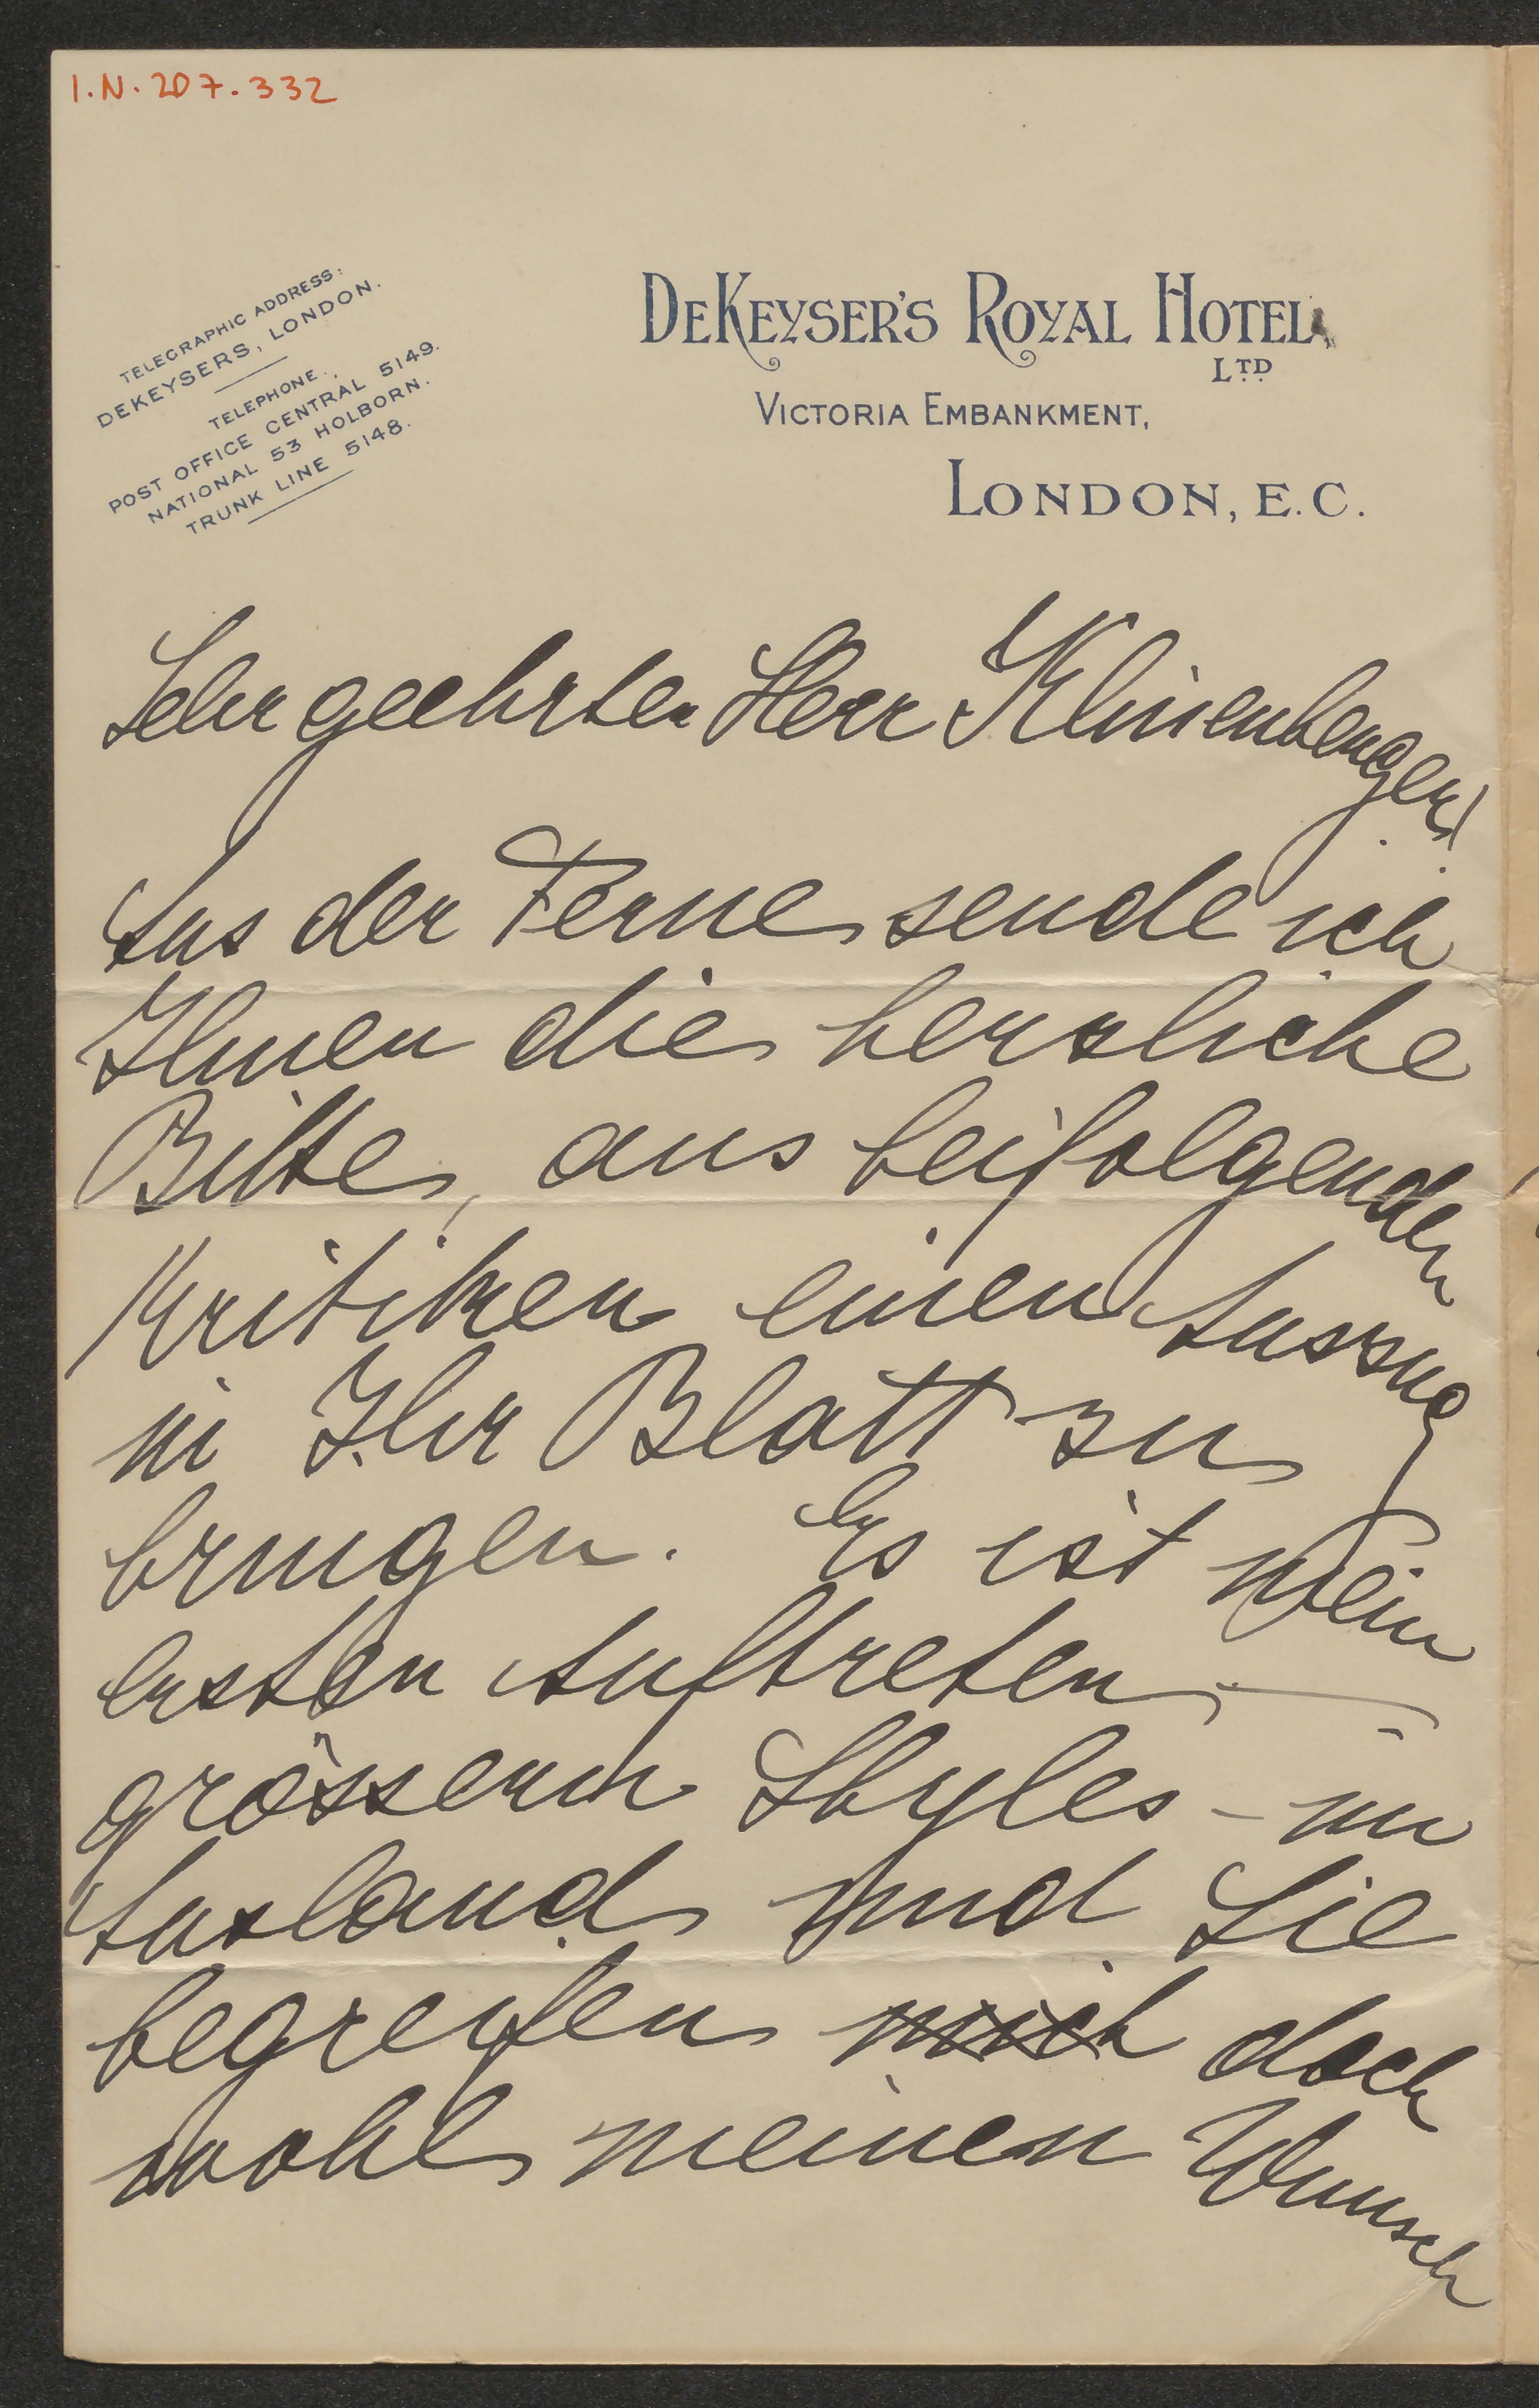 I.N. 207.332
TELEGRAPHIC ADDRESS:
DEKEYSERS, LONDON.
TELEPHONE.
POST OFFICE CENTRAL 5149.
NATIONAL 53 HOLBORN.
TRUNK LINE 5148.
DEKEYSER'S ROYAL HOTEL,
LTD
VICTORIA EMBANKMENT,
LONDON, E.C.
Sehr geehrter Herr Klinenberger!
Aus der Ferne sende ich
Ihnen die herzliche
Bitte, aus beifolgenden
Kritiken einen Auszug
in Ihr Blatt zu
bringen. Es ist mein
erstes Auftreten -
grösseren Styles - im
Ausland und Sie
begreifen mich doch
wohl meinen Wunsch